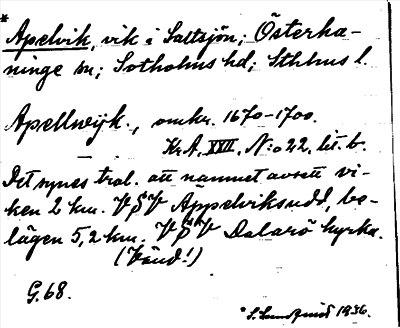 * Apelvik, vik i Saltsjön; Österha-
ninge sn; Sotholms hd; Sthlms l.
Apellwijk., omkr. 1670-1700.
Kr. A. XXII. N:o 22. lit. b.
Det synes trol. att namnet avsett vi-
ken 2 km. VSV Äppelviksudd, be-
lägen 5,2 km. VSV Dalarö kyrka.
(Vänd!)
G. 68.
* S. 1936.